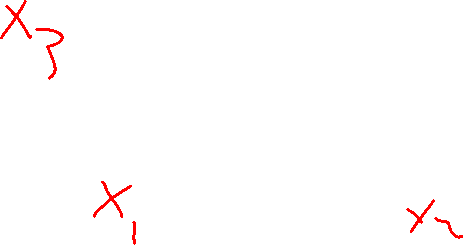 X₃
X₁ X₂